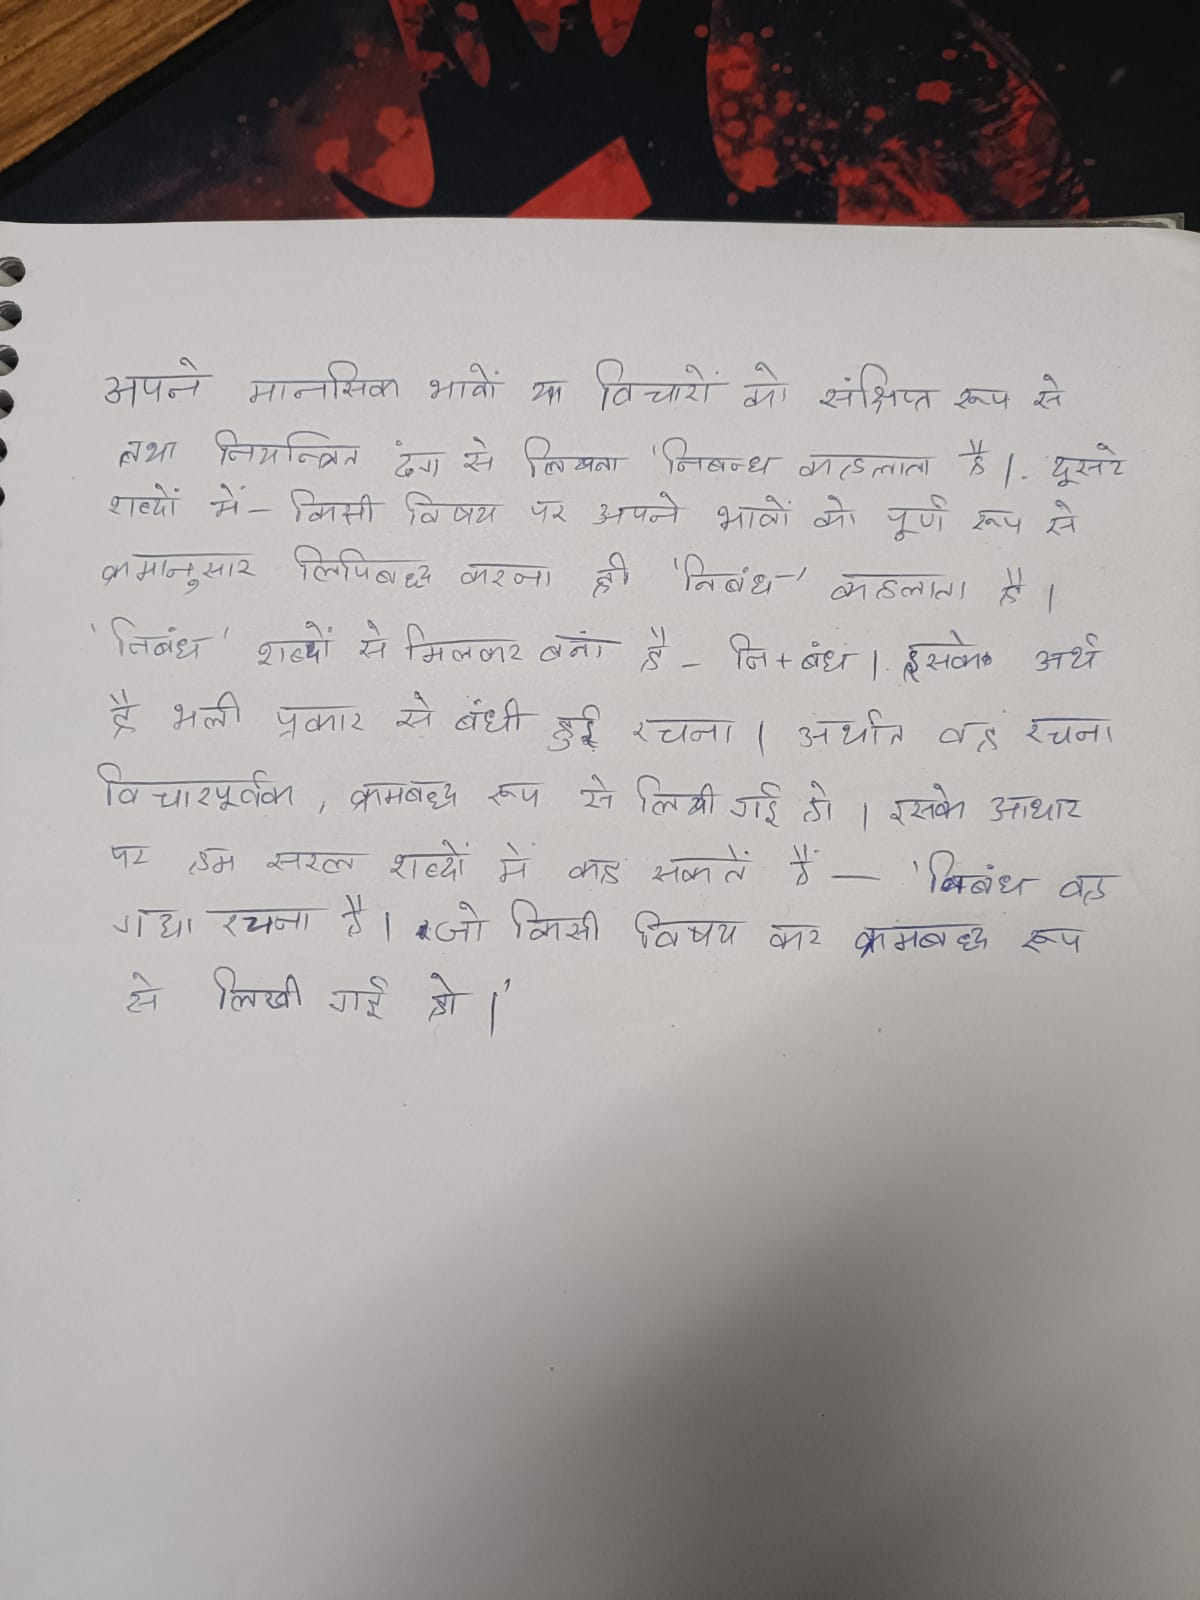 अपने मानसिक भावों या विचारों को संक्षिप्त रूप से
तथा नियन्त्रित ढंग से लिखना 'निबन्ध कहलाता है । दूसरे
शब्दों में - किसी विषय पर अपने भावों को पूर्ण रूप से
क्रमानुसार लिपिबध्द करना ही 'निबंध' कहलाता है ।
'निबंध' शब्दों से मिलकर बनां है - नि + बंध । इसके अर्थ
है भली प्रकार से बंधी हुई रचना । अर्थात वह रचना
विचारपूर्वक , क्रमबध्द रूप से लिखी गई हो । इसके आधार
पर हम सरल शब्दों में कह सकतें हैं — 'निबंध वह
गद्य रचना है । जो किसी विषय कर क्रमबध्द रूप
से लिखी गई हो ।'